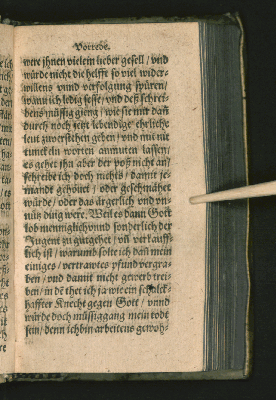 Vorrede.
were jhnen viel ein lieber gesell / vnd
würde nicht die helfft so viel wider-
willens vnnd verfolgung spüren /
wann ich ledig sesse / vnd deß schrei-
bens müssig gieng / wie sie mir dañ
durch noch jetzt lebendige ehrliche
leut zuuerstehen geben / vnd mit nit
worten anmuten lassen /
es gehet jhn aber der poß nicht an /
schreibe ich doch nichts / damit je-
mandt gehönet / oder geschmähet
würde / oder das ärgerlich vnd vn-
nütz ding were. Weil es dann Gott
lob menniglich vnnd sonderlich der
Jugent zu gut gehet / vñ verkauff-
lich ist / warumb solte ich dañ mein
einiges / vertrawtes pfund vergra-
ben / vnd damit nicht gewerb trei-
ben / in dē thet ich ja wie ein schalck-
haffter Knecht gegen Gott / vnnd
würde doch müssiggang mein todt
sein / denn ich bin arbeitens gewoh-